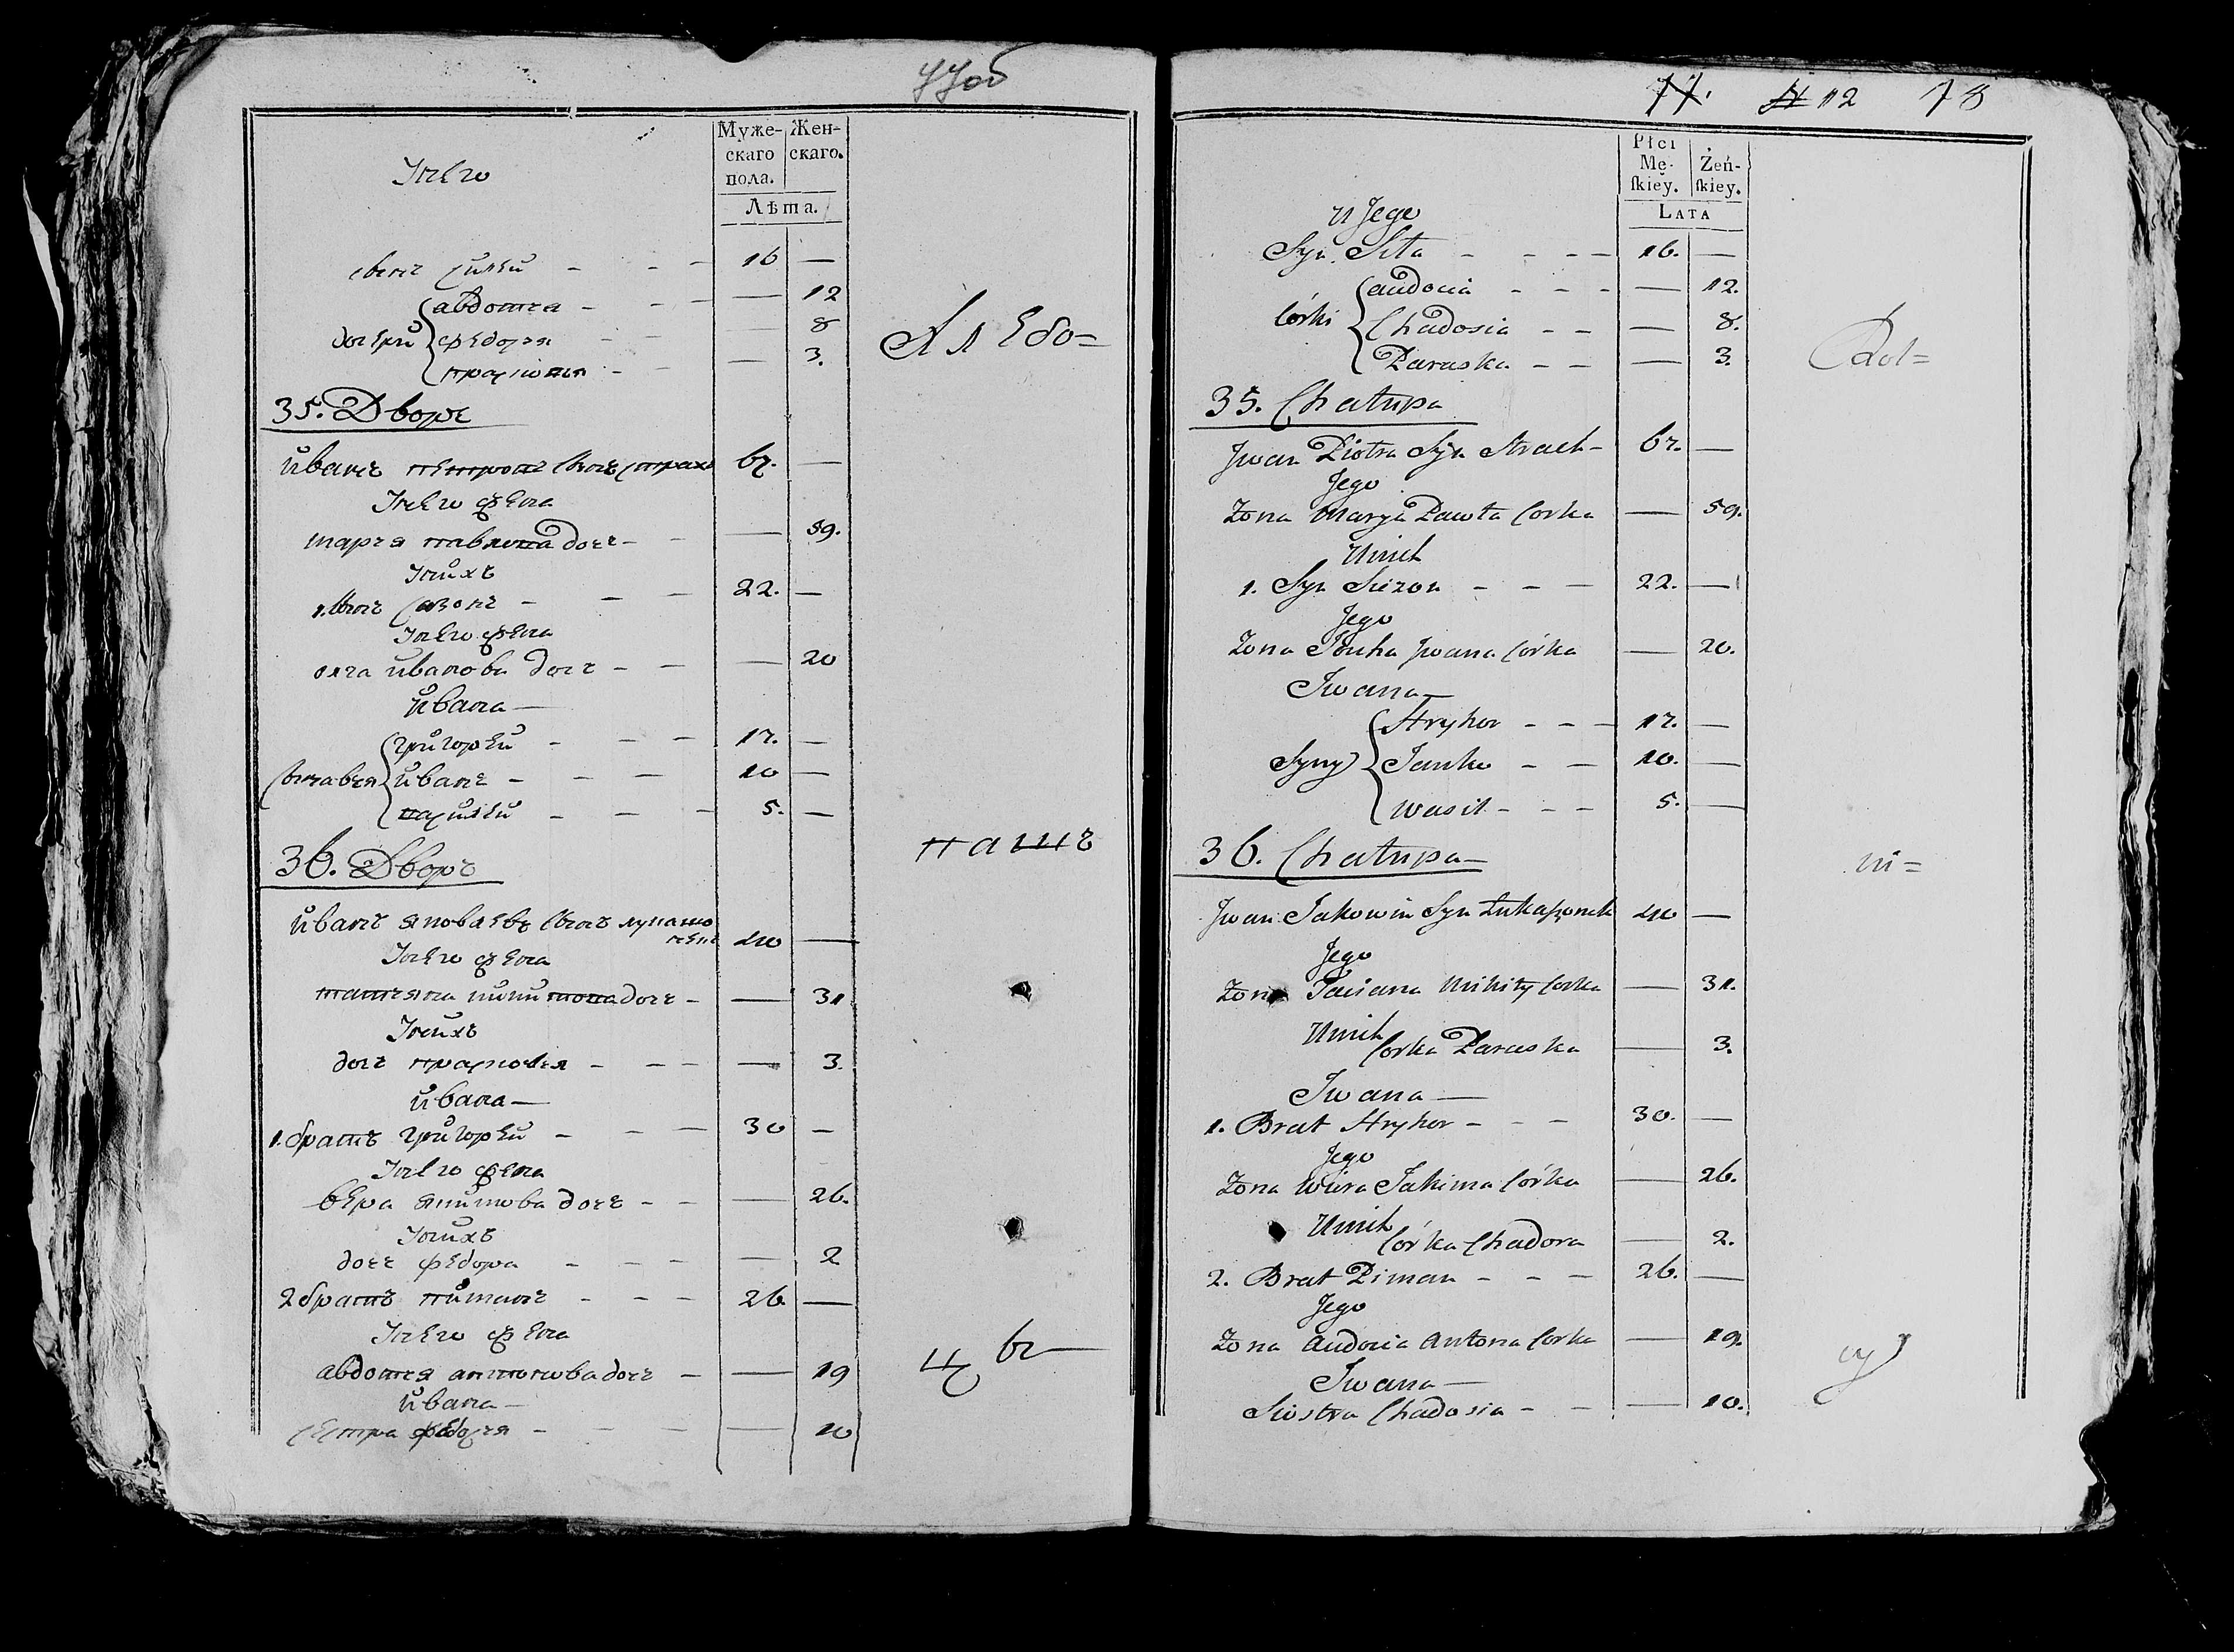 77об
Муже-
скаго
пола.
Жен-
скаго.
Лѣта.
Унего
сынъ силей - - - 16 —
авдотея - - - — 12
дочери федосея - - — 8
прасковея - - — 3.
Хлебо=
35. Дворъ
иванъ петровъ сынъ страхъ 67. —
Унего жена
маря павлова дочь - - — 59.
Унихъ
1. сынъ сазонъ - - - 22. —
Унего жена
иванова дочь - - — 20
ивана —
григорей - - - 17. —
сыновея иванъ - - - 10 —
василей - - - 5. —
36. Дворъ
пашъ
иванъ яковлевъ сынъ лукашо
40 —
Унего жена
татеяна никитина дочь - — 31
Унихъ
дочь прасковея - - - — 3.
ивана —
1. братъ григорей - - - 30 —
Унего жена
вера якимова дочь - - — 26.
Унихъ
дочь федора - - - — 2
2 братъ пиманъ - - - 26 —
Унего жена
авдотея антонова дочь - — 19
цы
ивана —
сестра федосея - - - — 10
77. 12 78
Płci
Mę-
ſkiey.
Żeń-
ſkiey.
LATA
U Jego
Syn Siła - - - - 16. —
Audocia - - - — 12.
Córki Chadosia - - — 8.
Paraska - - — 3.
Rol=
35. Chałupa
Jwan Piotra Syn Strach - 67. —
Jego
Zona Marya Pawła Corka — 59.
Unich
1. Syn Siezon - - - 22. —
Jego
Zona Jwana Córka — 20.
Jwana —
Hryhor - - - 17. —
Syny Janko - - 10. —
Wasil - - - 5. —
36. Chałupa —
ni=
Jwan Jakowin Syn Łukaszonek 40 —
Jego
Zona Taciana Mikity Corka — 31.
Unich
Corka Paraska — 3.
Jwana —
1. Brat Hryhor - - - 30. —
Jego
Zona Wiera Jakima Córka — 26.
Unich
Córka Chadora — 2.
2. Brat Piman - - - 26. —
Jego
Zona Audocia Antona Corka — 19.
cy
Jwana —
Siostra Chadosia - - — 10.